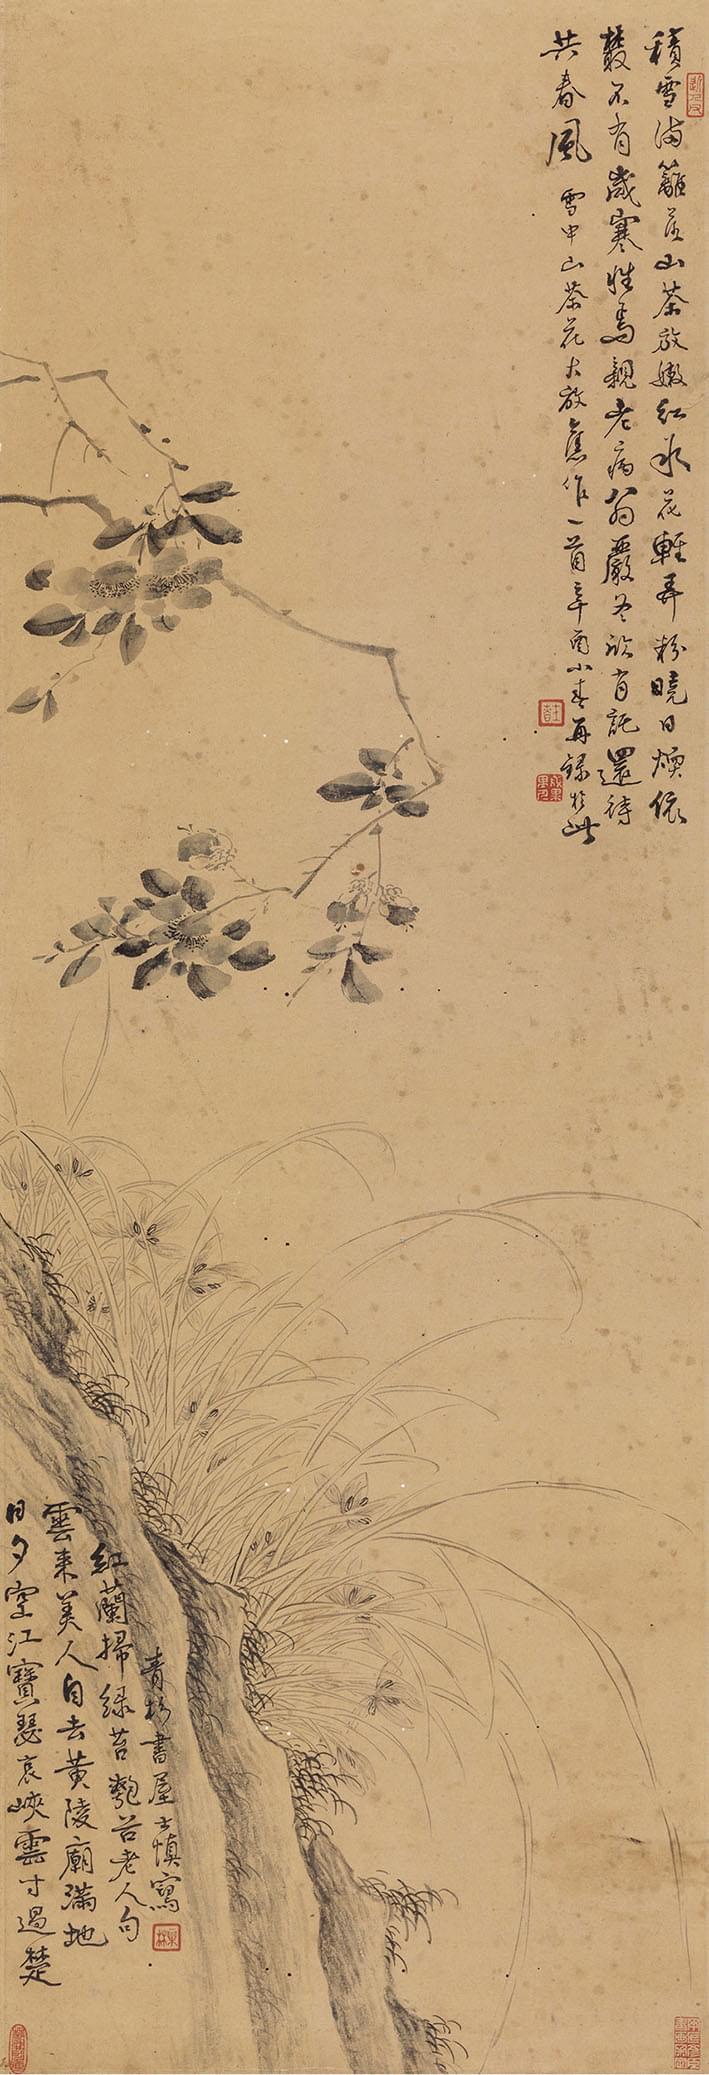 積雪滿籬落山茶放嫩紅氷花輕弄粉曉日煖依
叢不有歲寒性焉親老病翁嚴冬欣有託還待
共春風 雪中山茶花大放舊作一首辛酉小春再錄於此
日夕空江寶瑟哀峽雲才過楚
雲來美人自去黃陵廟滿地
紅蘭掃綠苔 老人句
青杉書屋士慎寫